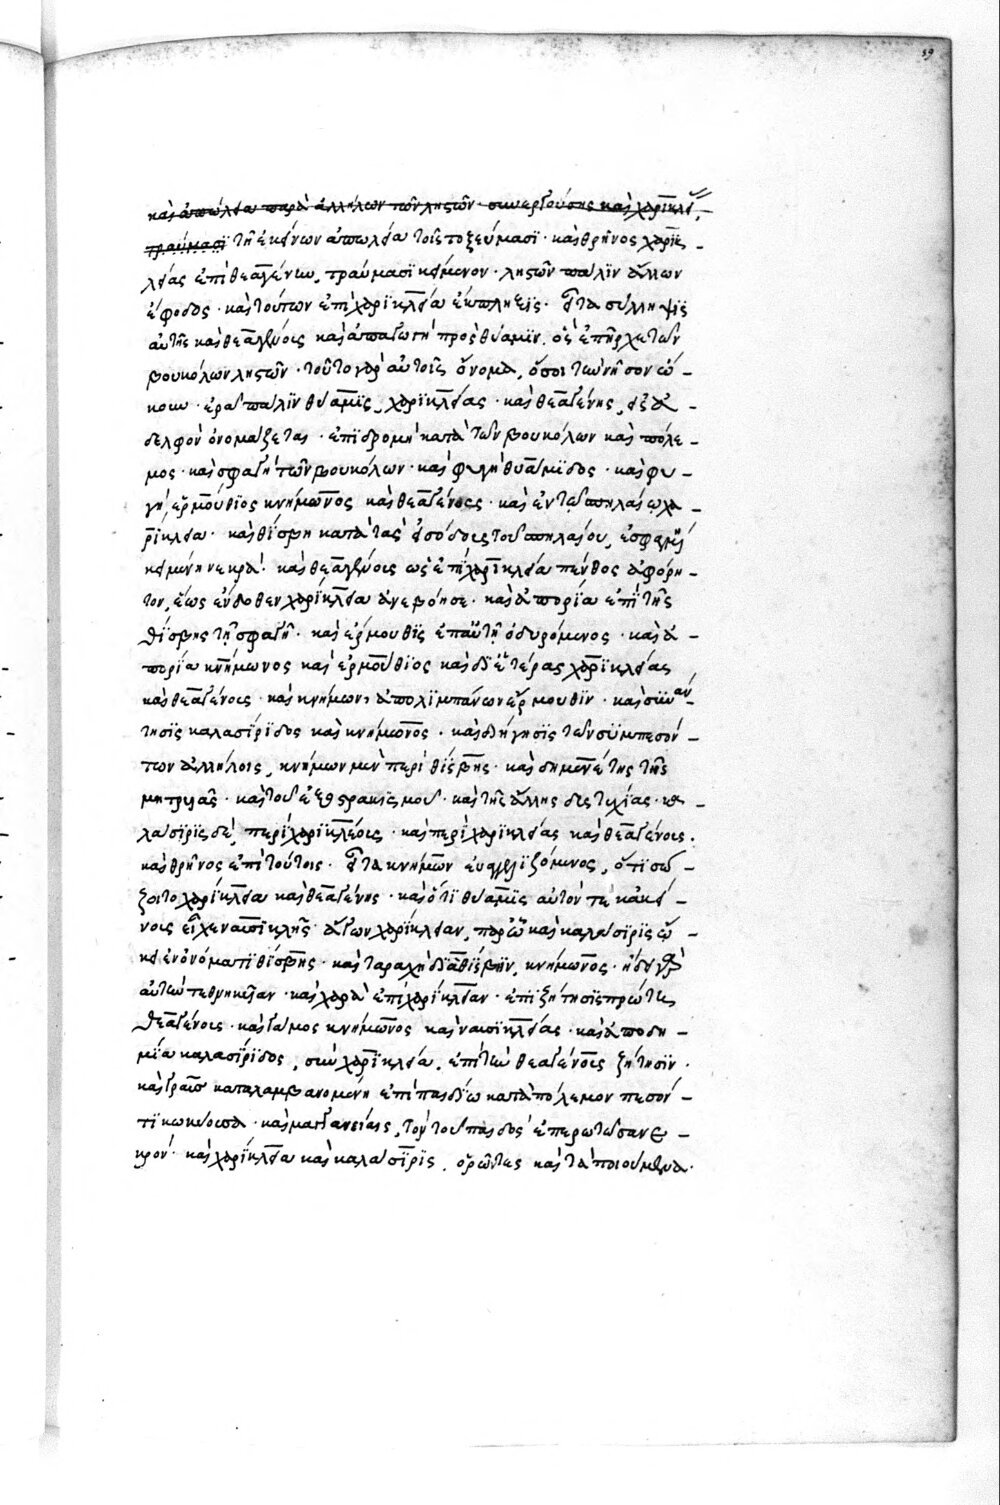 59
καὶ ἀπώλεια παρὰ ἀλλήλων τῶν λῃστῶν· συνεργούσης καὶ χαρικλεί
τραύμασι τῇ ἐκείνων ἀπωλεία τοῖς τοξεύμασι· καὶ θρῆνος χαρι-
κλείας ἐπὶ θεαγένει, τραύμασι κειμένου· λῃστῶν πάλιν ἄλλων
ἔφοδος· καὶ τούτων ἐπὶ χαρικλεία ἔκπληξις· εἶτα σύλληψις
αὐτῆς καὶ θεαγένους καὶ ἀπαγωγὴ πρὸς θύαμιν. ὃς ἐπῆρχε τῶν
βουκόλων λῃστῶν· τοῦτο γὰρ αὐτοῖς ὄνομα, ὅσοι τὴν νῆσον ᾤ-
κουν· ἐρᾶ πάλιν θύαμις, χαρικλείας· καὶ θεαγένης, εἰς ἀ-
δελφὸν ὀνομάζεται· ἐπιδρομὴ κατὰ τῶν βουκόλων καὶ πόλε-
μος· καὶ σφαγὴ τῶν βουκόλων· καὶ φυγὴ θυάμιδος· καὶ φυ-
γὴ, ἑρμούθιος κνήμωνος καὶ θεαγένους· καὶ ἐν τῷ σπηλαίῳ χα-
ρίκλεια· καὶ θίσβη κατὰ τὰς εἰσόδους τοῦ σπηλαίου, ἐσφαγμέ
κειμένη νεκρά· καὶ θεαγένους ὡς ἐπὶ χαρικλεία πένθος ἀφόρη-
τον, ἕως ἔνδοθεν χαρίκλεια ἀνεβόησε· καὶ ἀπορία ἐπὶ τῆς
θίσβης τῇ σφαγῇ· καὶ ἑρμουθις ἐπ' αὐτῇ ὀδυρόμενος· καὶ ἀ-
πορία κνήμωνος καὶ ἑρμούθιος καὶ δι' ἑτέρας χαρικλείας
καὶ θεαγένους· καὶ κνήμων, ἀπολιμπάνων ἑρμουθιν· καὶ συναν-
τησις καλασίριδος καὶ κνήμωνος· καὶ διήγησις τῶν συμπεσόν-
των ἀλλήλοις, κνήμων μὲν περὶ θίσβης· καὶ δημαινέτης τῆς
μητρυιᾶς· καὶ τοῦ ἐξοστρακισμοῦ· καὶ τῆς ἄλλης δυστυχίας· κα-
λάσιρις δὲ, περὶ χαρικλέους· καὶ περὶ χαρικλείας καὶ θεαγένους.
καὶ θρῆνος ἐπὶ τούτοις· εἶτα κνήμων εὐαγγελιζόμενος, ὅτι σώ-
ζοιτο χαρίκλεια καὶ θεαγένης· καὶ ὅτι θύαμις αὐτόν τε κἀκεί-
νους εἶχε ναυσικλῆς ἄγων χαρίκλειαν, παρ' ᾧ καὶ καλάσιρις ᾤ-
κει ἐν ὀνόματι θίσβης· καὶ ταραχὴ διὰ θίσβην, κνήμωνος· ᾔδει γὰρ
αὐτὴν τεθνηκυῖαν· καὶ χαρὰ ἐπὶ χαρίκλειαν· ἐπιζήτησις πρώτης
θεαγένους· καὶ γάμος κνήμωνος καὶ ναυσικλείας· καὶ ἀποδη-
μία καλασίριδος, σὺν χαρικλεία, ἐπὶ τὴν θεαγένους ζήτησιν·
καὶ γραῦς καταλαμβανομένη ἐπὶ παιδίῳ κατὰ πόλεμον πεσόν-
τι κωκύουσα· καὶ μαγγανείαις, τὸν τοῦ παιδὸς ἐπερωτῶσα νε-
κρόν· καὶ χαρίκλεια καὶ καλάσιρις, ὁρῶντες καὶ τὰ ποιούμενα·